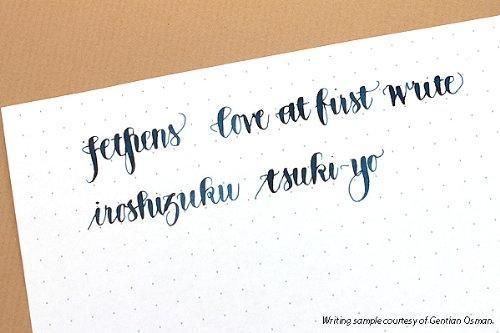 JetPens love at first write
iroshizuku tsuki-yo
Writing sample courtesy of Gentian Osman.